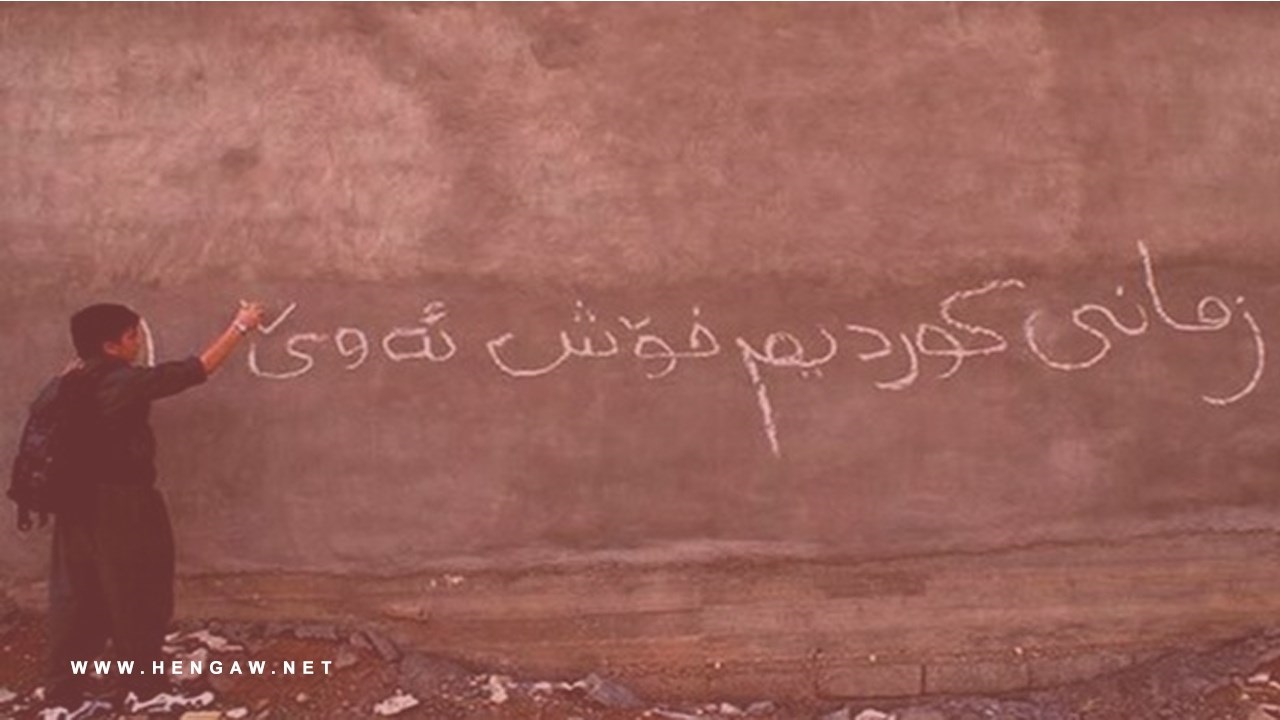 زمانی کوردیم خۆش ئەوێ
WWW.HENGAW.NET